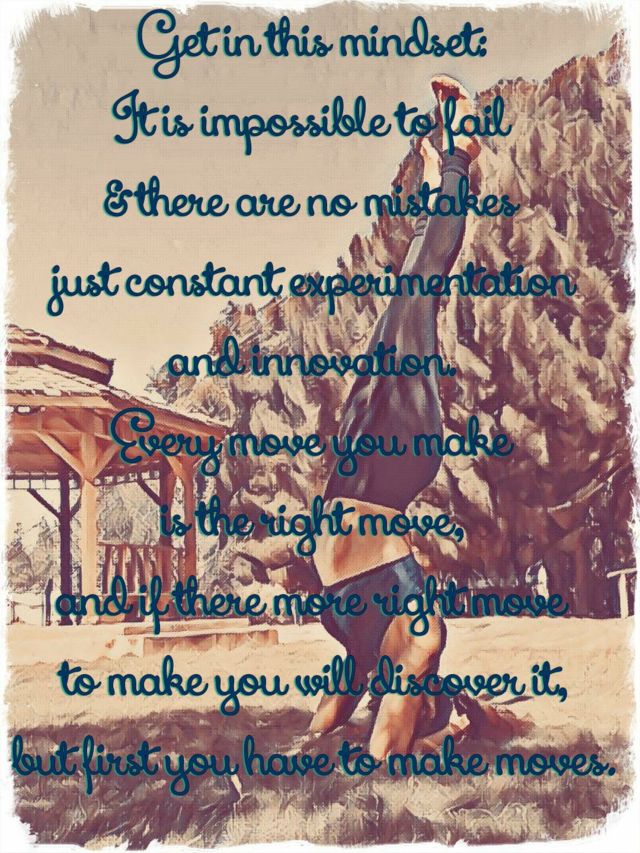 Get in this mindset:
It is impossible to fail
& there are no mistakes
just constant experimentation
and innovation.
Every move you make
is the right move,
and if there more right move
to make you will discover it,
but first you have to make moves.